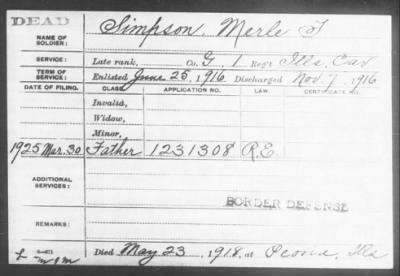 DEAD
NAME OF SOLDIER: Simpson, Merle F
SERVICE: Late rank, Co. G, 1 Reg't Ills. Cav
TERM OF SERVICE: Enlisted June 25, 1916, Discharged Nov. 7, 1916
DATE OF FILING. CLASS. APPLICATION NO. LAW. CERTIFICATE NO.
Invalid,
Widow,
Minor,
1925 Mar. 30 Father 1231308 R.E.
ADDITIONAL SERVICES:
BORDER DEFENSE
REMARKS:
Died May 23, 1918, at Peoria, Ills